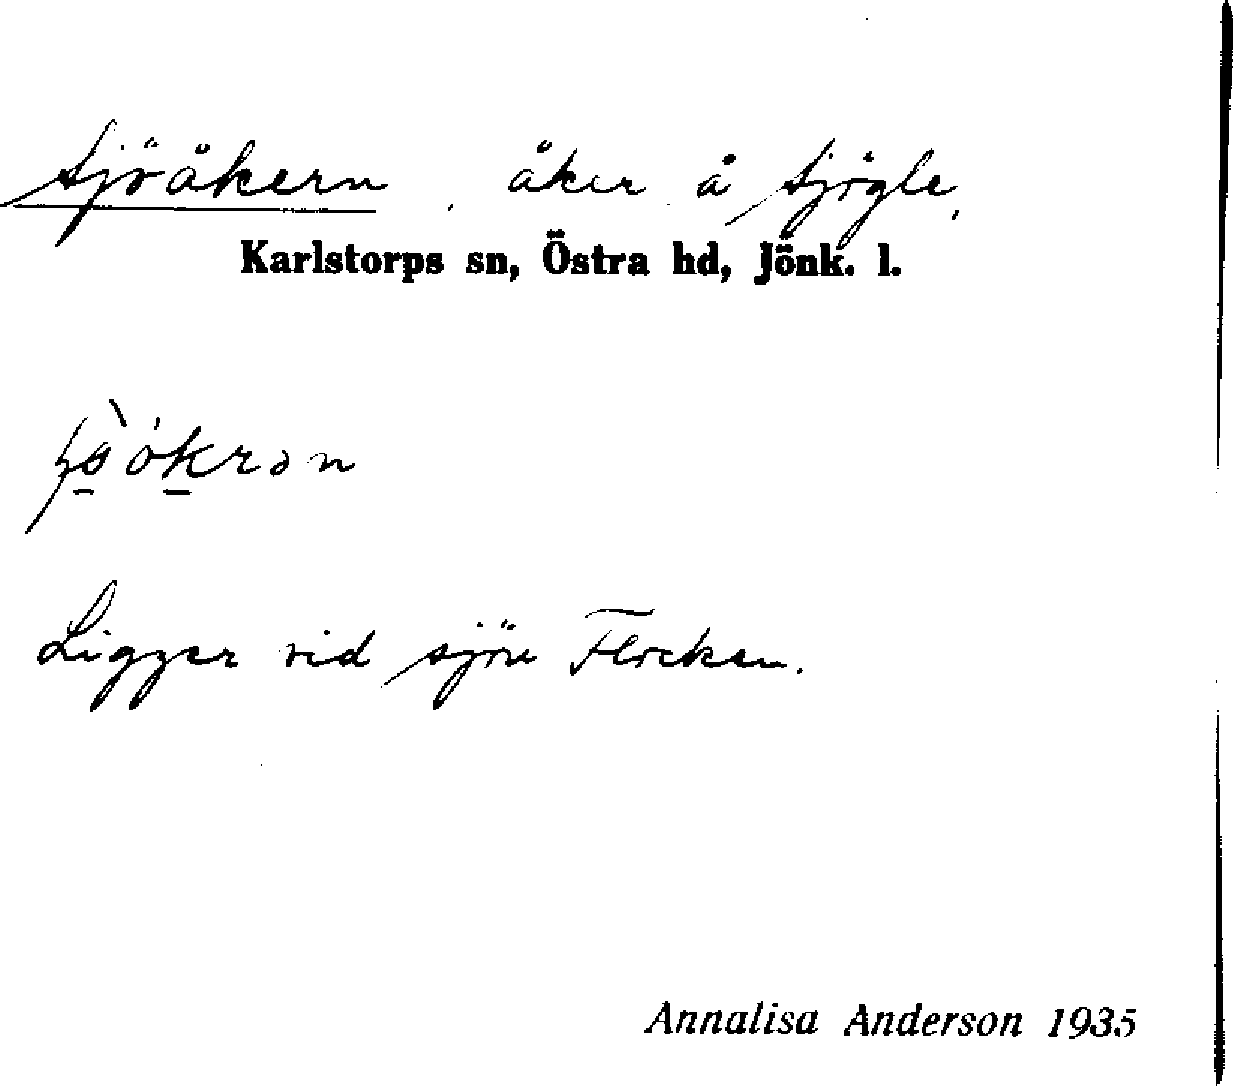 Sjöåkern, åker å Sjögle,
Karlstorps sn, Östra hd, Jönk. l.
Ligger vid sjön Flocken.
Annalisa Anderson 1935